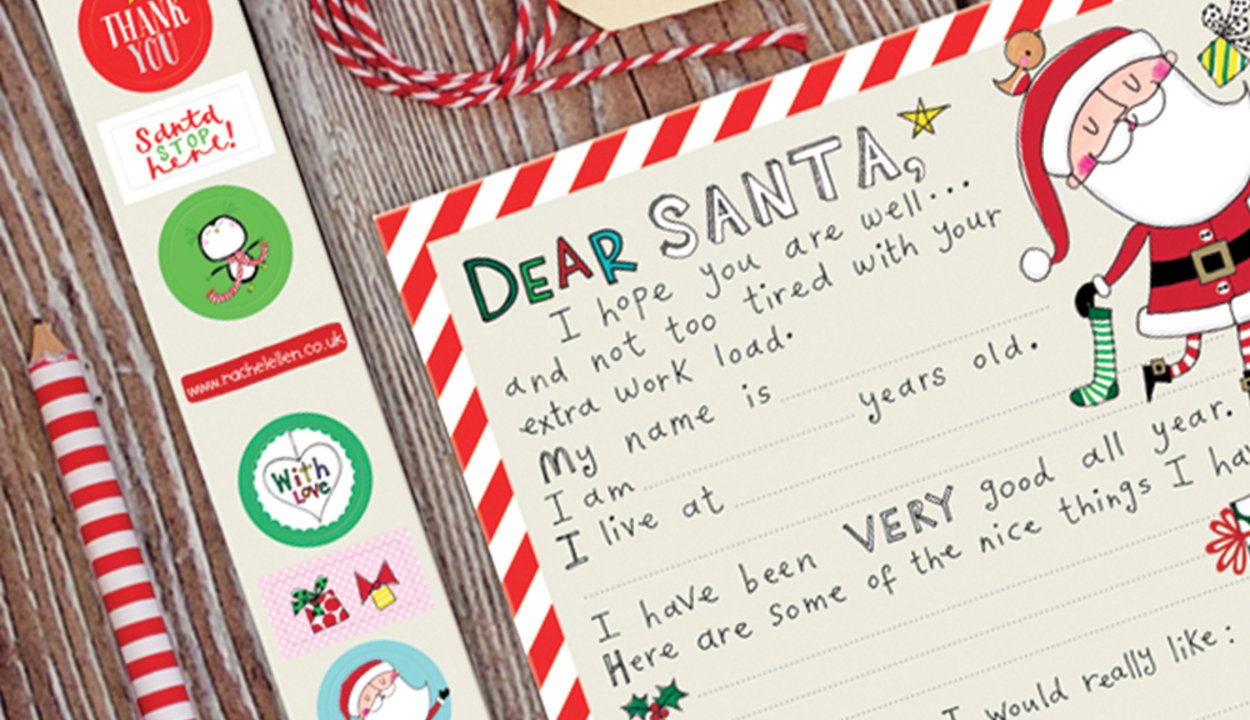 THANK
YOU
Santa
STOP
here!
www.rachelellen.co.uk
With
Love
DEAR SANTA,
I hope you are well...
and not too tired with your
extra work load.
My name is
I am years old.
I live at
I have been VERY good all year.
Here are some of the nice things I
I would really like: